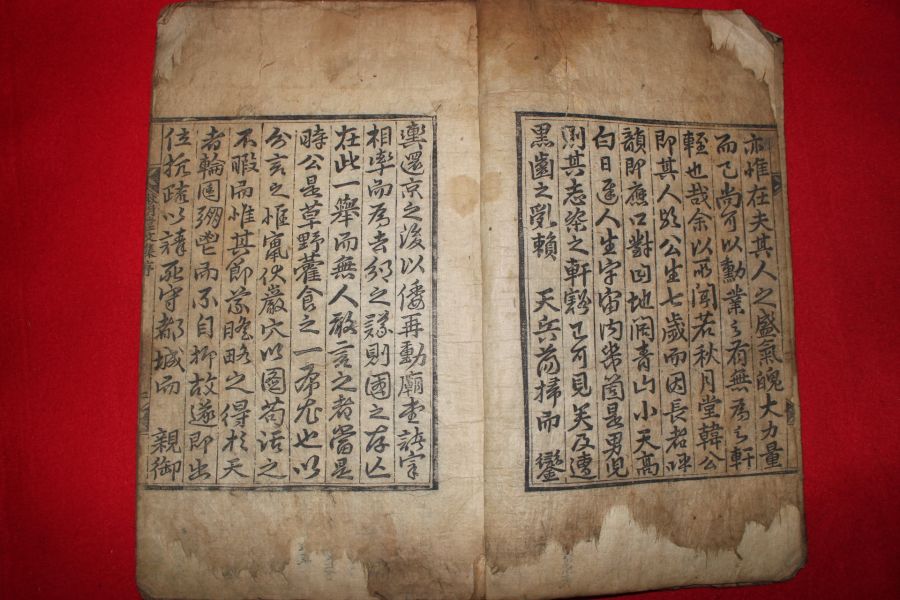 亦惟在夫其人之盛氣魄大力量
而已尚可以勳業之有無爲之軒
輊也哉余以所聞若秋月堂韓公
即其人歟公生七歲而因長者呼
韻即應口對曰地闊青山小天高
白日遲人生宇宙內常箇是男兒
則其志槩之軒豁已可見矣及遭
黑齒之亂賴 天兵蕩掃而 鑾
輿還京之後以倭再動廟堂訣家
相率而爲去邠之議則國之存亡
在此一舉而無人敢言之者當是
時公是草野藿食之一布衣也以
分言之惟竄伏巖穴以圖苟活之
不暇而惟其節義膽略之得於天
者輪囷弸鬯而不自抑故遂即出
位抗疏以請死守都城而 親御